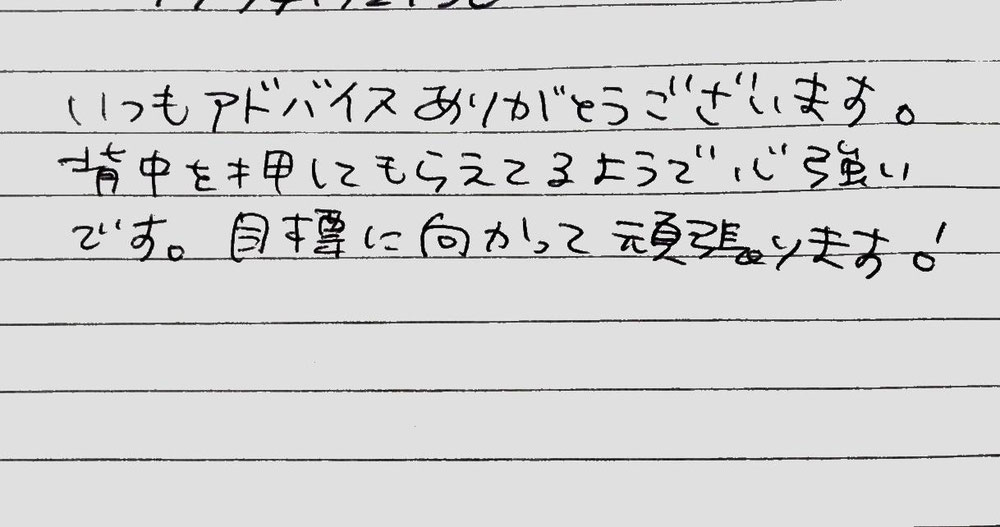 いつもアドバイスありがとうございます。
背中を押してもらえてるようで心強い
です。目標に向かって頑張ります!